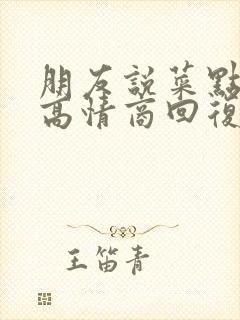 朋友說菜點
高情商回復
王笛青